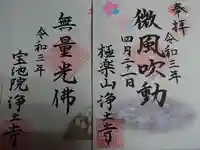 奉拝
令和三年
四月二十一日
微風吹動
極楽山浄土寺
無量光佛
令和三年
宝池院浄土寺